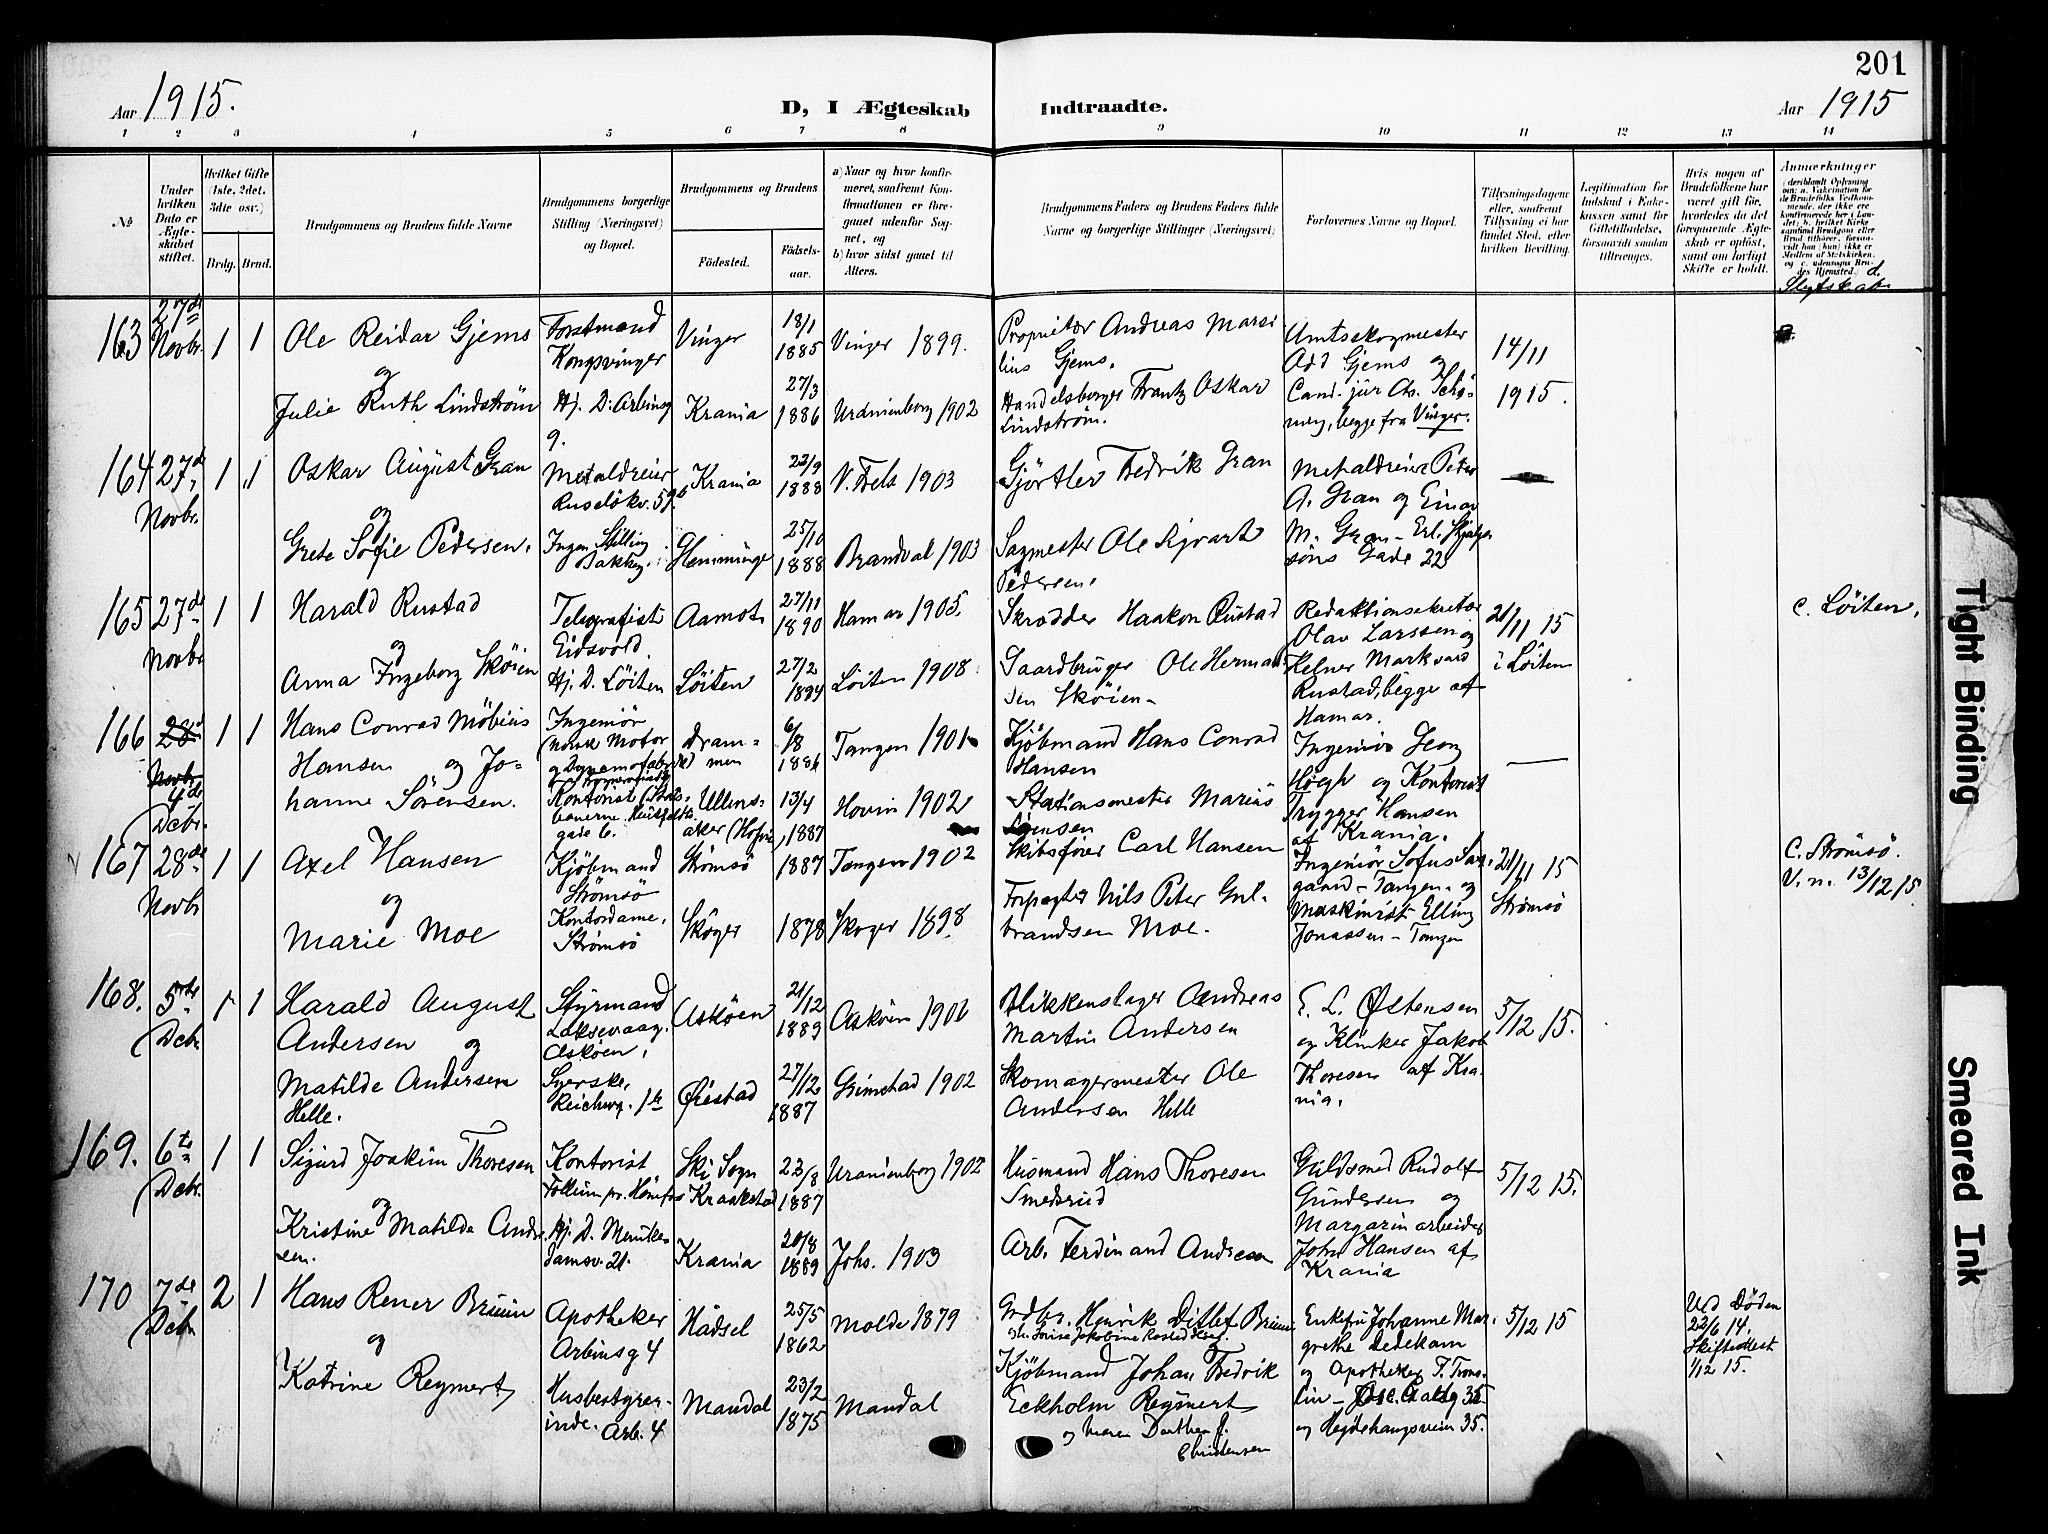 201
Aar 1915.
D, I Ægteskab Indtraadte.
Aar 1915
1 2 3 4 5 6 7 8 9 10 11 12 13 14
No
Under hvilken Dato er Ægteskabet stiftet.
Hvilket Gifte (1ste, 2det, 3die osv.)
Brdg. Brud.
Brudgommens og Brudens fulde Navne
Brudgommens borgerlige Stilling (Næringsvei) og Bopæl.
Brudgommens og Brudens
Födested.
Födselsaar.
a) Naar og hvor konfirmeret, saafremt Konfirmationen er foregaaet udenfor Sognet, og
b) hvor sidst gaaet til Alters.
Brudgommens Faders og Brudens Faders fulde Navne og borgerlige Stillinger (Næringsvei)
Forlovernes Navne og Bopæl.
Tillysningsdagene eller, saafremt Tillysning ei har fundet Sted, efter hvilken Bevilling.
Legitimation for Indskud i Enkekassen samt for Giftetilladelse, forsaavidt saadan tiltrænges.
Hvis nogen af Brudefolkene har været gift för, hvorledes da det foregaaende Ægteskab er oplöst, samt om lovligt Skifte er holdt.
Anmærkninger
(deriblandt Oplysning om: a. Vakcination for de Brudefolks Vedkommende, der ikke ere konfirmerede her i Landet; b. hvilket Kirkesamfund Brudgom eller Brud tilhörer, forsaavidt han (hun) ikke er Medlem af Statskirken, og c. udensogns Brudes Hjemsted.) d. Slegtskab
163 27de Novbr. 1 1
Ole Reidar Gjems
og
Julie Ruth Lindström
Forstmand
Kongsvinger
Hj. D. Arbinsg
9.
Vinger 18/1 1885 Vinger 1899.
Krania 27/3 1886 Uranienborg 1902
Proprietær Andreas Marsi
lius Gjems.
Handelsborger Frantz Oskar
Lindström.
Amtsskogmester
Gjems og
Cand. jur Chr. Schö-
ning, begge fra Vinger.
14/11
1915.
164 27de Novbr. 1 1
Oskar August Gran
og
Grete Sofie Pedersen.
Metaldreier
Ruselökv. 59b
Ingen Stilling
Bakkeg.
Krania 22/9 1888 V. Frels 1903
25/10 1888 Brandval 1903
Gjörtler Fredrik Gran
Sagmester Ole Sigvart
Pedersen.
Metaldreier Peter
A. Gran og Einar
M. Gran - Erl. Skjalgs
söns Gade 22
165 27de Novbr 1 1
Harald Rustad
og
Anna Ingeborg Sköien
Telegrafist
Eidsvold.
Hj. D. Löiten
Aamot 27/11 1890 Hamar 1905.
Löiten 27/2 1894 Löiten 1908.
Skrædder Haakon Rustad
Gaardbruger Ole Herman
sen Sköien -
Redaktionssekretær
Olav Larssen og
Helner Markvard
Rustad, begge af
Hamar.
21/11 15
i Löiten
c. Löiten.
166 28de Novbr 4de Dcbr. 1 1
Hans Conrad Möbius
Hansen og Jo-
hanne Sörensen.
Ingeniör
(Norsk Motor
og Dynamofabrik)
Kontorist (Stats-
banerne
gade 6.
Dram-
men 6/8 1886 Tangen 1901
Ullens-
aker (Hovin) 13/4 1887 Hovin 1902
Kjöbmand Hans Conrad
Hansen
Stationsmester Marius
Sörensen
Ingeniör Georg
Höegh og Kontorist
Trygger Hansen
af Krania.
167 28de Novbr 1 1
Axel Hansen
og
Marie Moe
Kjöbmand
Strömsö
Kontordame.
Strömsö
Strömsö 1887 Tangen 1902
Skoger 1878 Skoger 1898.
Skibsförer Carl Hansen
Forpagter Nils Peter Gul-
brandsen Moe.
Ingeniör Sofus Saz-
gaard - Tangen - og
Maskinist Elling
Jonassen - Tangen
21/11 15
Strömsö
c. Strömsö.
V. n. 13/12 15.
168. 5te Dcbr 1 1
Harald August
Andersen og
Matilde Andersen
Helle.
Styrmand
Laksevaag.
Asköen.
Syerske,
Reichwg. 1b
Asköen 21/12 1889 Asköen 1906
Öiestad 27/12 1887 Grimstad 1902
Blikkenslager Andreas
Martin Andersen
Skomagermester Ole
Andersen Helle
E. L. Østensen
og Klinker Jakob
Thoresen af Kra-
nia.
5/12 15.
169. 6te Dcbr. 1 1
Sigurd Joakim Thoresen
og
Kristine Matilde Andre
sen.
Kontorist
Follum pr. Hönefos
Hj. D. Menke-
damsv. 21.
Ski Sogn
Kraakstad 23/8 1887 Uranienborg 1902
Krania 20/8 1889 Johs. 1903
Husmand Hans Thoresen
Smedsrud
Arb. Ferdinand Andresen
Guldsmed Rudolf
Gundersen og
Margarinarbeider
John Hansen af
Krania
5/12 15.
170 7de Dcbr 2 1
Hans Rener Bruun
og
Katrine Reymert
Apotheker
Arbinsg 4
Husbestyrer-
inde. Arb. 4
Hadsel 25/5 1862 Molde 1879
Mandal 23/2 1875 Mandal
Grdbr. Henrik Ditlef Bruun
Kjöbmand Johan Fredrik
Eckholm Reymert
og Maren Dorthea J.
Christensen
Enkefru Johanne Mar-
grethe Dedekam
og Apotheker T. Trons-
lin -
og Hegdehaugsveien 35.
5/12 15
Ved Döden
22/6 14.
Skifteattest
1/12 15.
Tight Binding
Smeared Ink